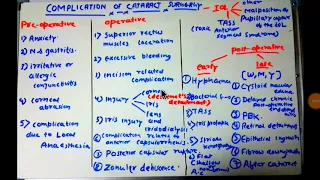 COMPLICATION OF CATARACT SURGERY
IOL
other
malposition
Pupillary capture
of the IOL
TASS
(Toxic Anterior
Segment Syndrome)
Pre-operative
1) Anxiety
2) N & gastritis.
3) irritative or
allergic
conjunctivitis
4) corneal
abrasion
5) complication
due to Local
Anaesthesia
operative
1) Superior rectus
muscle laceration
2) Excessive bleeding
3) incision related
complication
4) injury
cornea
(descemet's
detachment)
iris
lens
iridodialysis
5) complication related to
anterior capsulorrhexis
7) Posterior capsular rupture
8) Zonular dehiscence
post-operative
early
1) Hyphaema
2) Bacterial
3) TASS
4) iris prolapse
5) striate
keratopathy
6) Flat
shallow
A. chamber
late
(W, M, Y)
1) cystoid macular
edema
2) Delayed chronic
3) PBK
4) Retinal detachment
5) Epithelial ingrowth
6) Fibrous downgrowth
7) After cataract